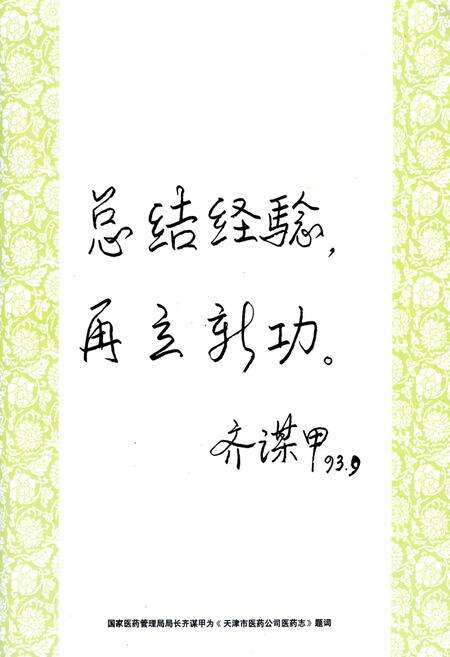 总结经验,
再立新功。
齐谋甲 93.9
国家医药管理局局长齐谋甲为《天津市医药公司医药志》题词